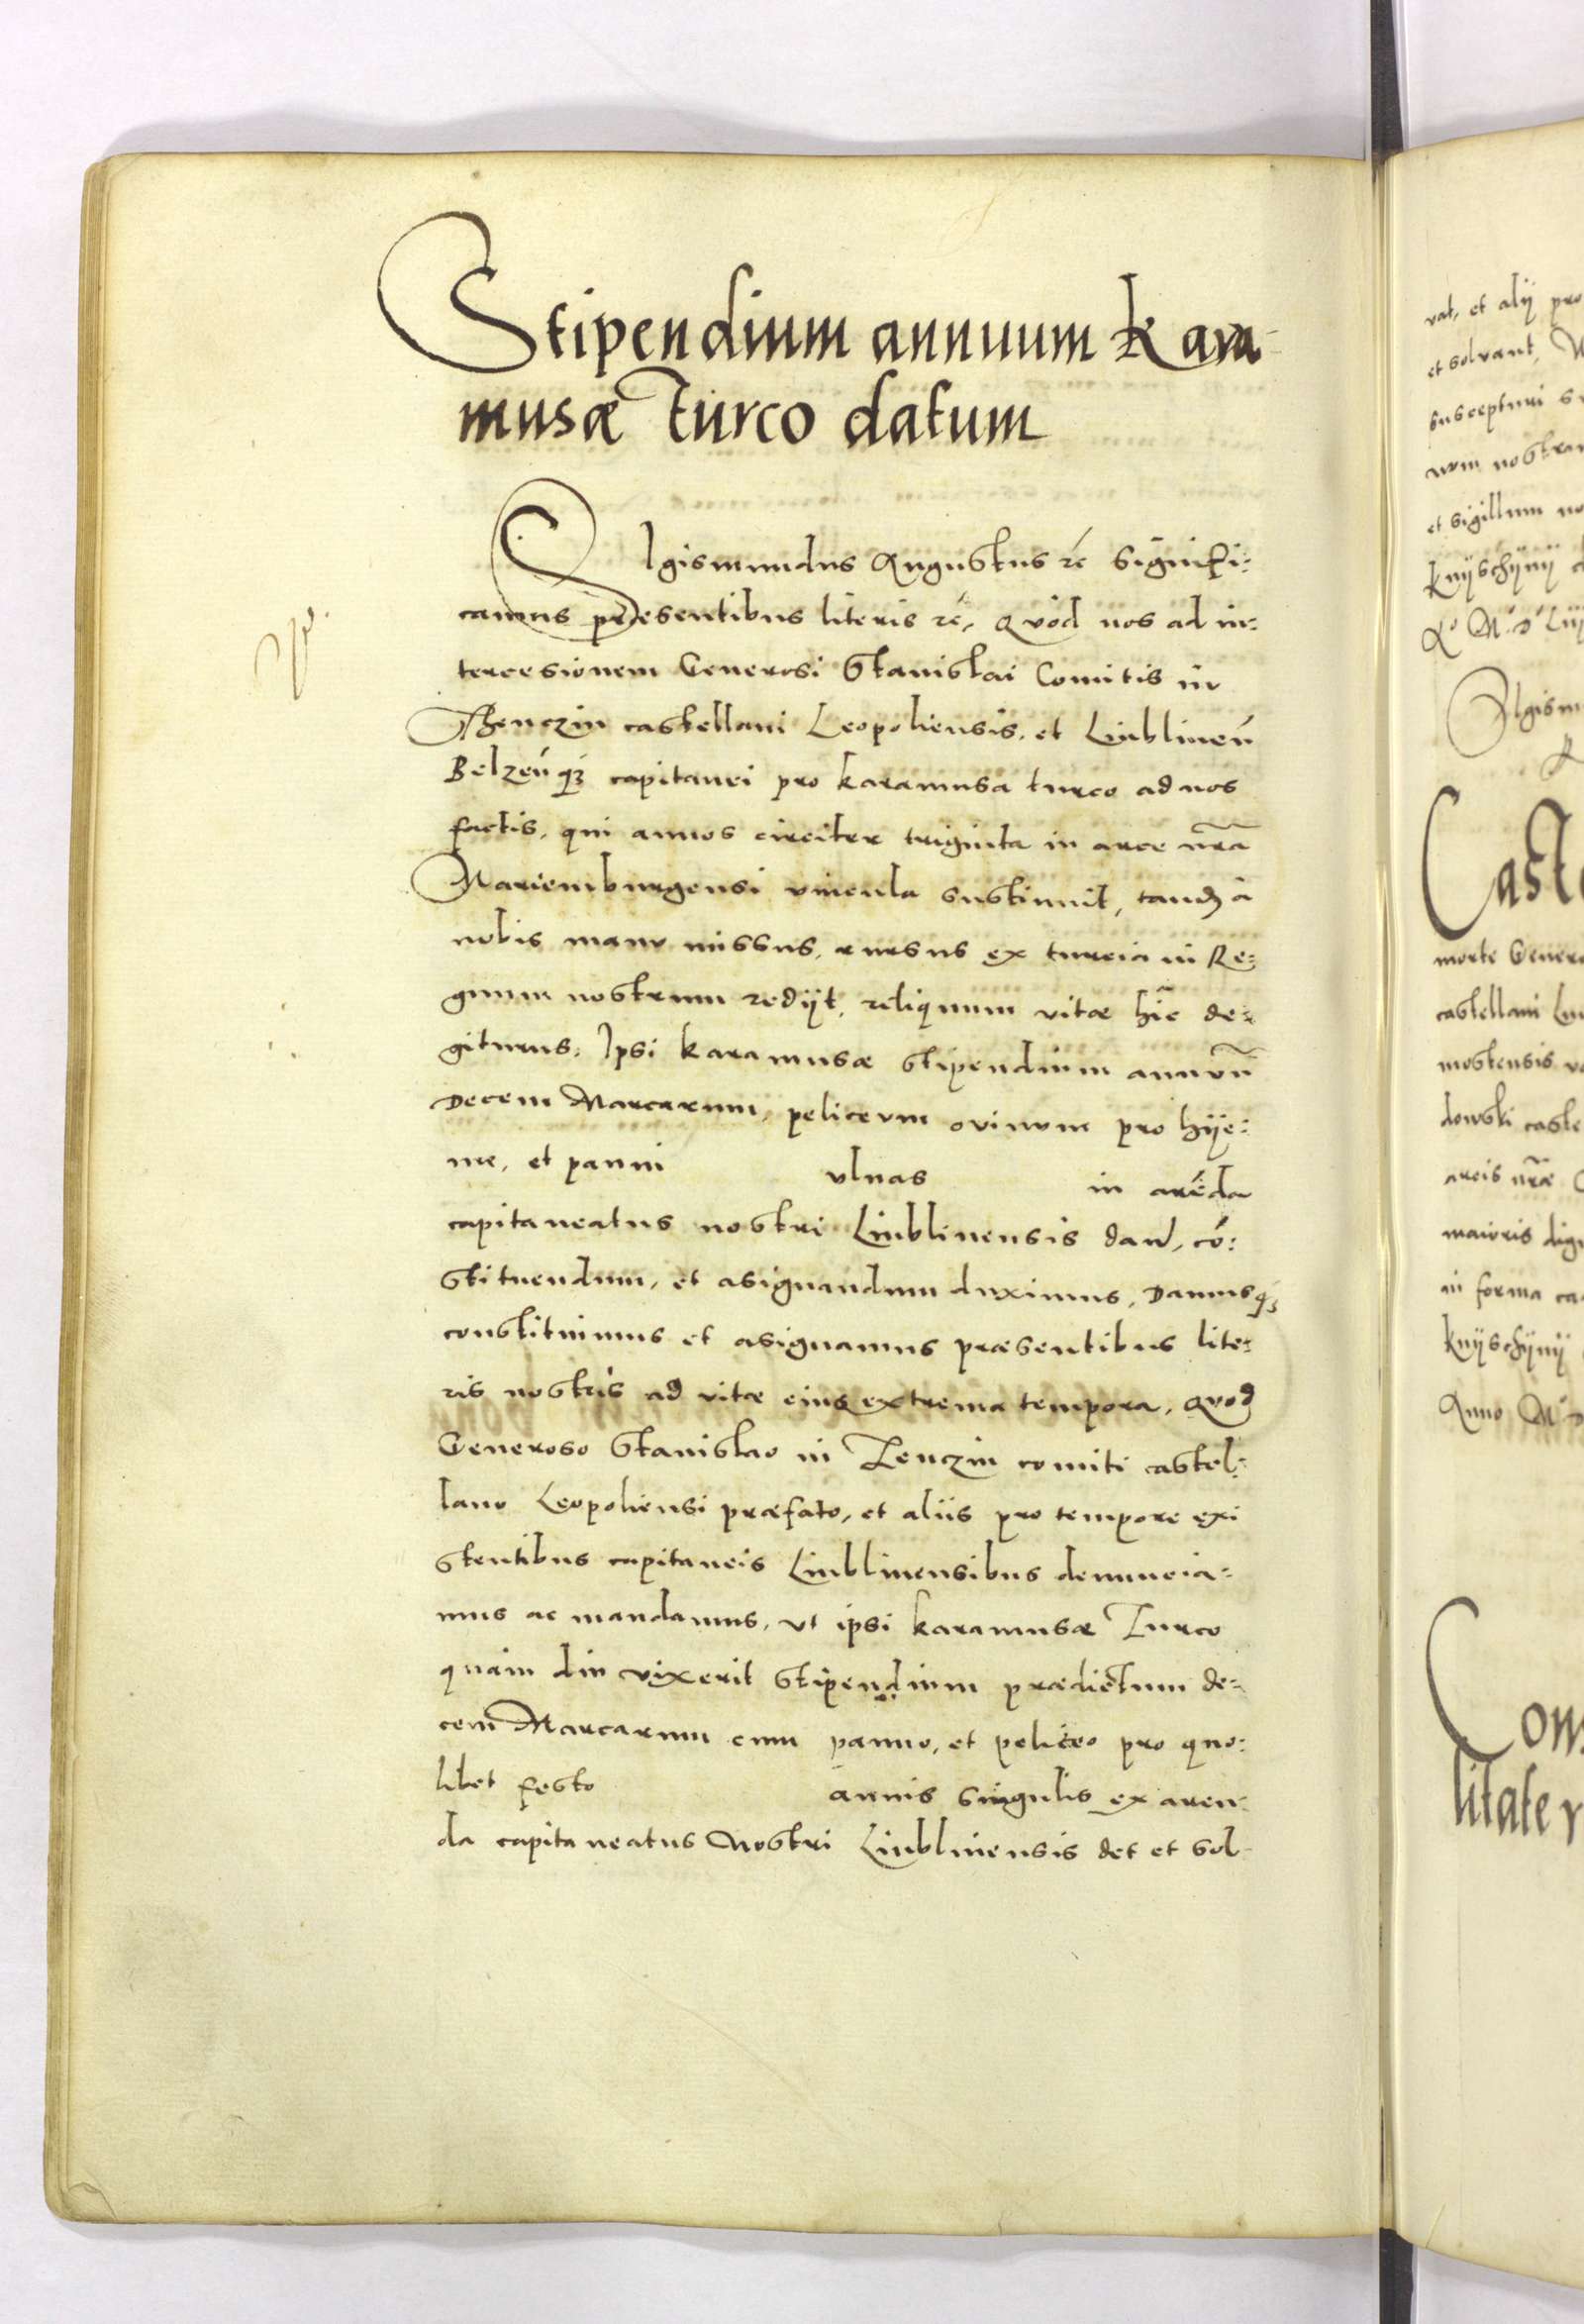 Stipendium annuum Kara-
musæ Turco datum
Sigismundus Augustus rc̄ Signifi:
camus præsentibus literis rc̄, Quòd nos ad in:
tercesionem Generosi Stanislai Comitis in
Thenczin castellani Leopoliensis, et Liublineń
Belzeń q3 capitanei pro karamusa turco ad nos
factis, qui annos circiter triginta in arce nr̄a
Mariemburgensi vincula sustinuit, tandē à
nobis manu missus, rursus ex turcia in Re:
gnum nostrum redijt, reliquum vitæ hīc de:
giturus, Ipsi karamusæ stipendium annuū
Decem Marcarum, peliceum ovinum pro hye:
me, et panni ulnas in arēda
capitaneatus nostri Liublinensis dand, cō:
stituendum, et asignandum duximus, Damusq3
constituimus et asignamus præsentibus lite:
ris nostris ad vitæ eius extrema tempora, Quod
Generoso Stanislao in Tenczin comiti castel:
lano Leopoliensi præfato, et aliis pro tempore exi
stentibus capitaneis Liublinensibus denuncia:
mus ac mandamus, ut ipsi karamusæ Turco
quàm diu vixerit stipendium prædictum de:
cem Marcarum cum panno, et peliceo pro quo:
libet festo annis singulis ex aren:
da capitaneatus Nostri Liublinensis det et sol-
vat, et alij pro
et solvant,
suscepturi
nem nostram
et sigillum no
knijschijnij
Casto
morte Genero
castellani Lu
mostensis
dowski caste
arcis nr̄æ
maioris dign
in forma ca
knijschijnij
Anno M D
Cons
litate